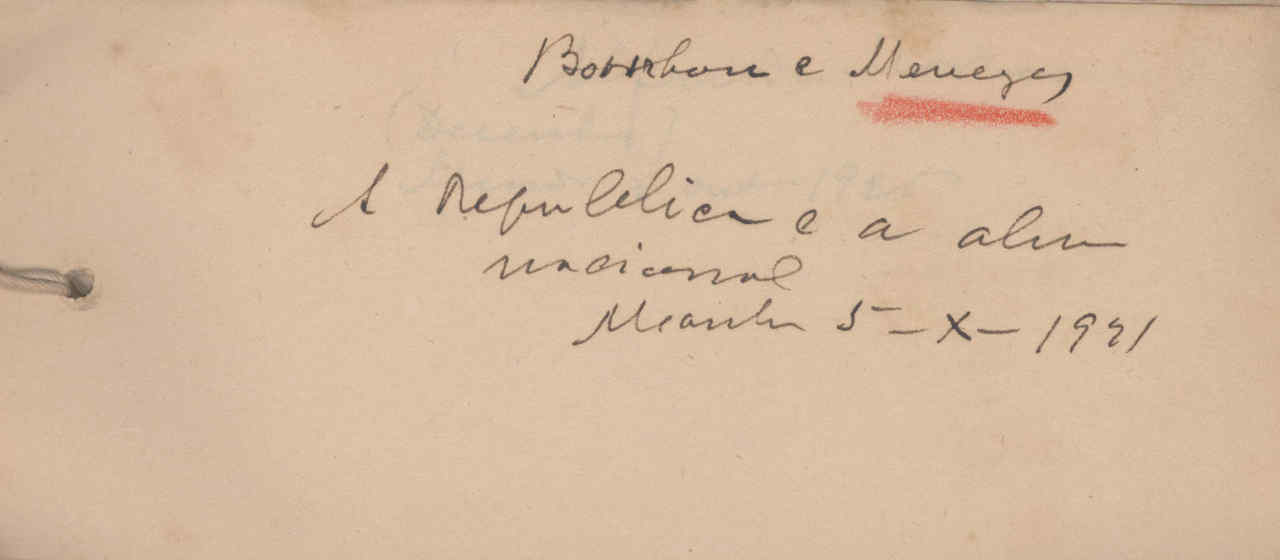 Bourbon e Menezes
A Republica e a alma
nacional
Manhã 5-X-1921